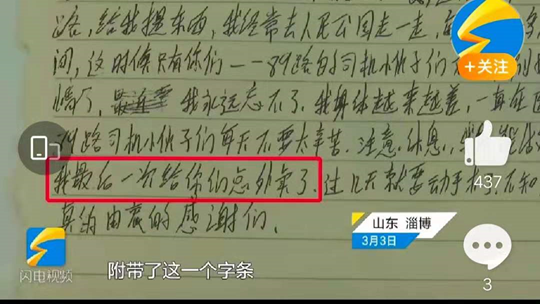 路，给我提东西，我经常去人民公园走一走，
间，这时候只有你们——89路的司机小伙子们
我永远忘不了。我身体越来越差，一直在
89路司机小伙子们每天不要太辛苦。注意休息，
我最后一次给你们点外卖了。过几天就要动手术，不知
真的由衷的感谢们。
+关注
437
3
山东 淄博
3月3日
闪电视频
附带了这一个字条